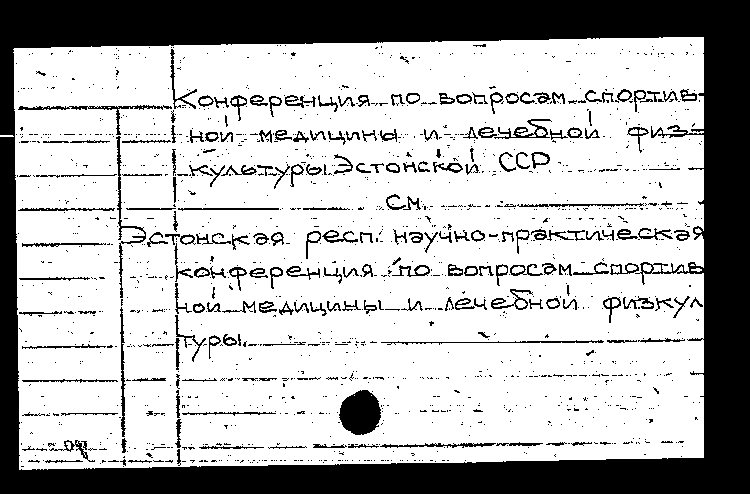 Конференция по вопросам спортив-
ной медицины и лечебной физ-
культуры Эстонской ССР
см.
Эстонская респ. научно-практическая
конференция по вопросам спортив
ной медицины и лечебной физкул
туры.